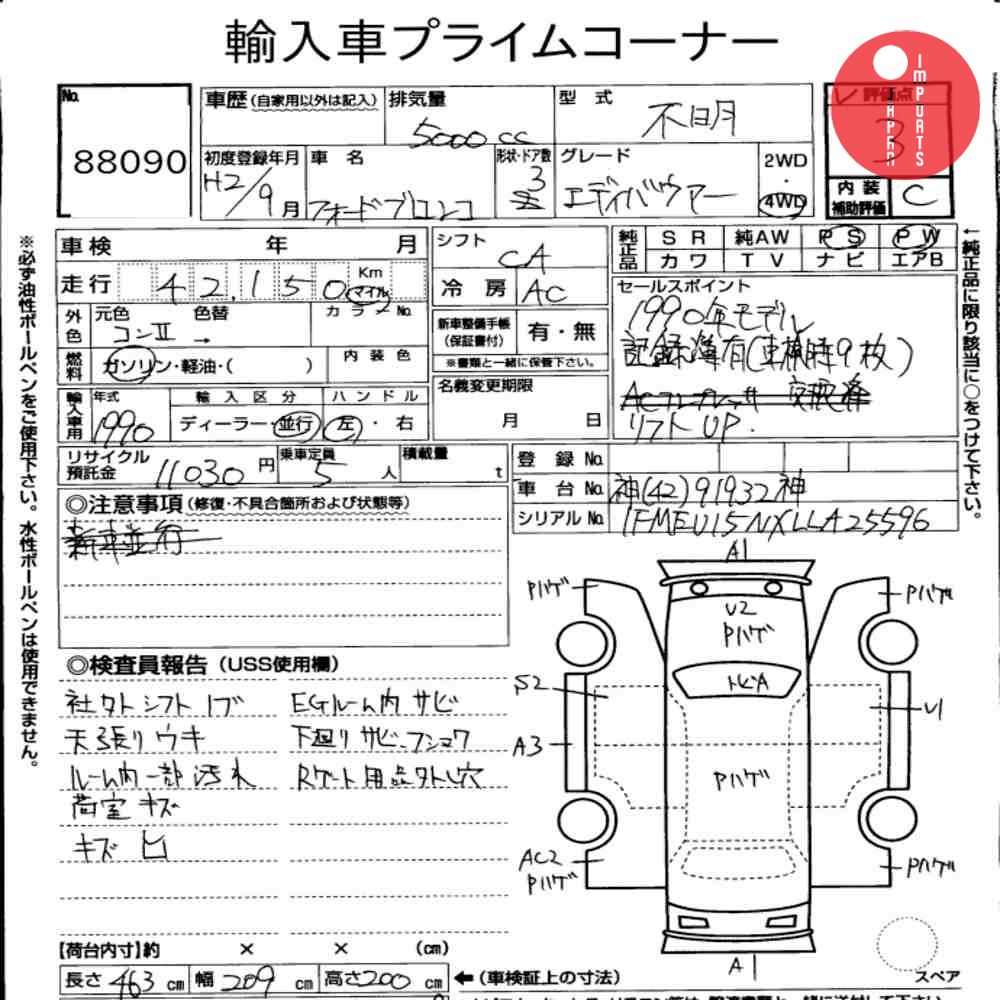 輸入車プライムコーナー
JAPAN IMPORTS
No. 88090
車歴(自家用以外は記入) 排気量 5000cc
型式 不明
評価点 3
初度登録年月 H2/9月
車名 フォードブロンコ
形状・ドア数 3
グレード エディバウアー
2WD・4WD
内装補助評価 C
※必ず油性ボールペンをご使用下さい。水性ボールペンは使用できません。
←純正品に限り該当に○をつけて下さい。
車検 年 月
シフト CA
純正品 SR 純AW PS PW
カワ TV ナビ エアB
走行 42,150 Km マイル
冷房 AC
セールスポイント
1990年モデル
記録簿有(車検時9枚)
リフトUP.
外色 元色 コンⅡ 色替 → カラーNo.
新車整備手帳(保証書付) 有・無
※書類と一緒に保管下さい。
燃料 ガソリン・軽油・( ) 内装色
名義変更期限 月 日
輸入車用 年式 1990 輸入区分 ディーラー・並行 ハンドル 左・右
リサイクル預託金 11030円 乗車定員 5人 積載量 t
登録No.
車台No. 神(42)91932神
シリアルNo. 1FMEU15NXLLA25596
◎注意事項(修復・不具合箇所および状態等)
新車並行
◎検査員報告(USS使用欄)
社外シフトノブ EGルーム内サビ
天張りウキ 下廻りサビ、フショク
ルーム内一部汚れ Rゲート用品外し穴
荷室キズ
キズ凹
A1
Pハゲ Pハゲ
U2
Pハゲ
トビA
S2 U1
A3
Pハゲ
AC2
Pハゲ Pハゲ
A1
スペア
【荷台内寸】約 × × (cm)
長さ 463cm 幅 209cm 高さ 200cm ←(車検証上の寸法)